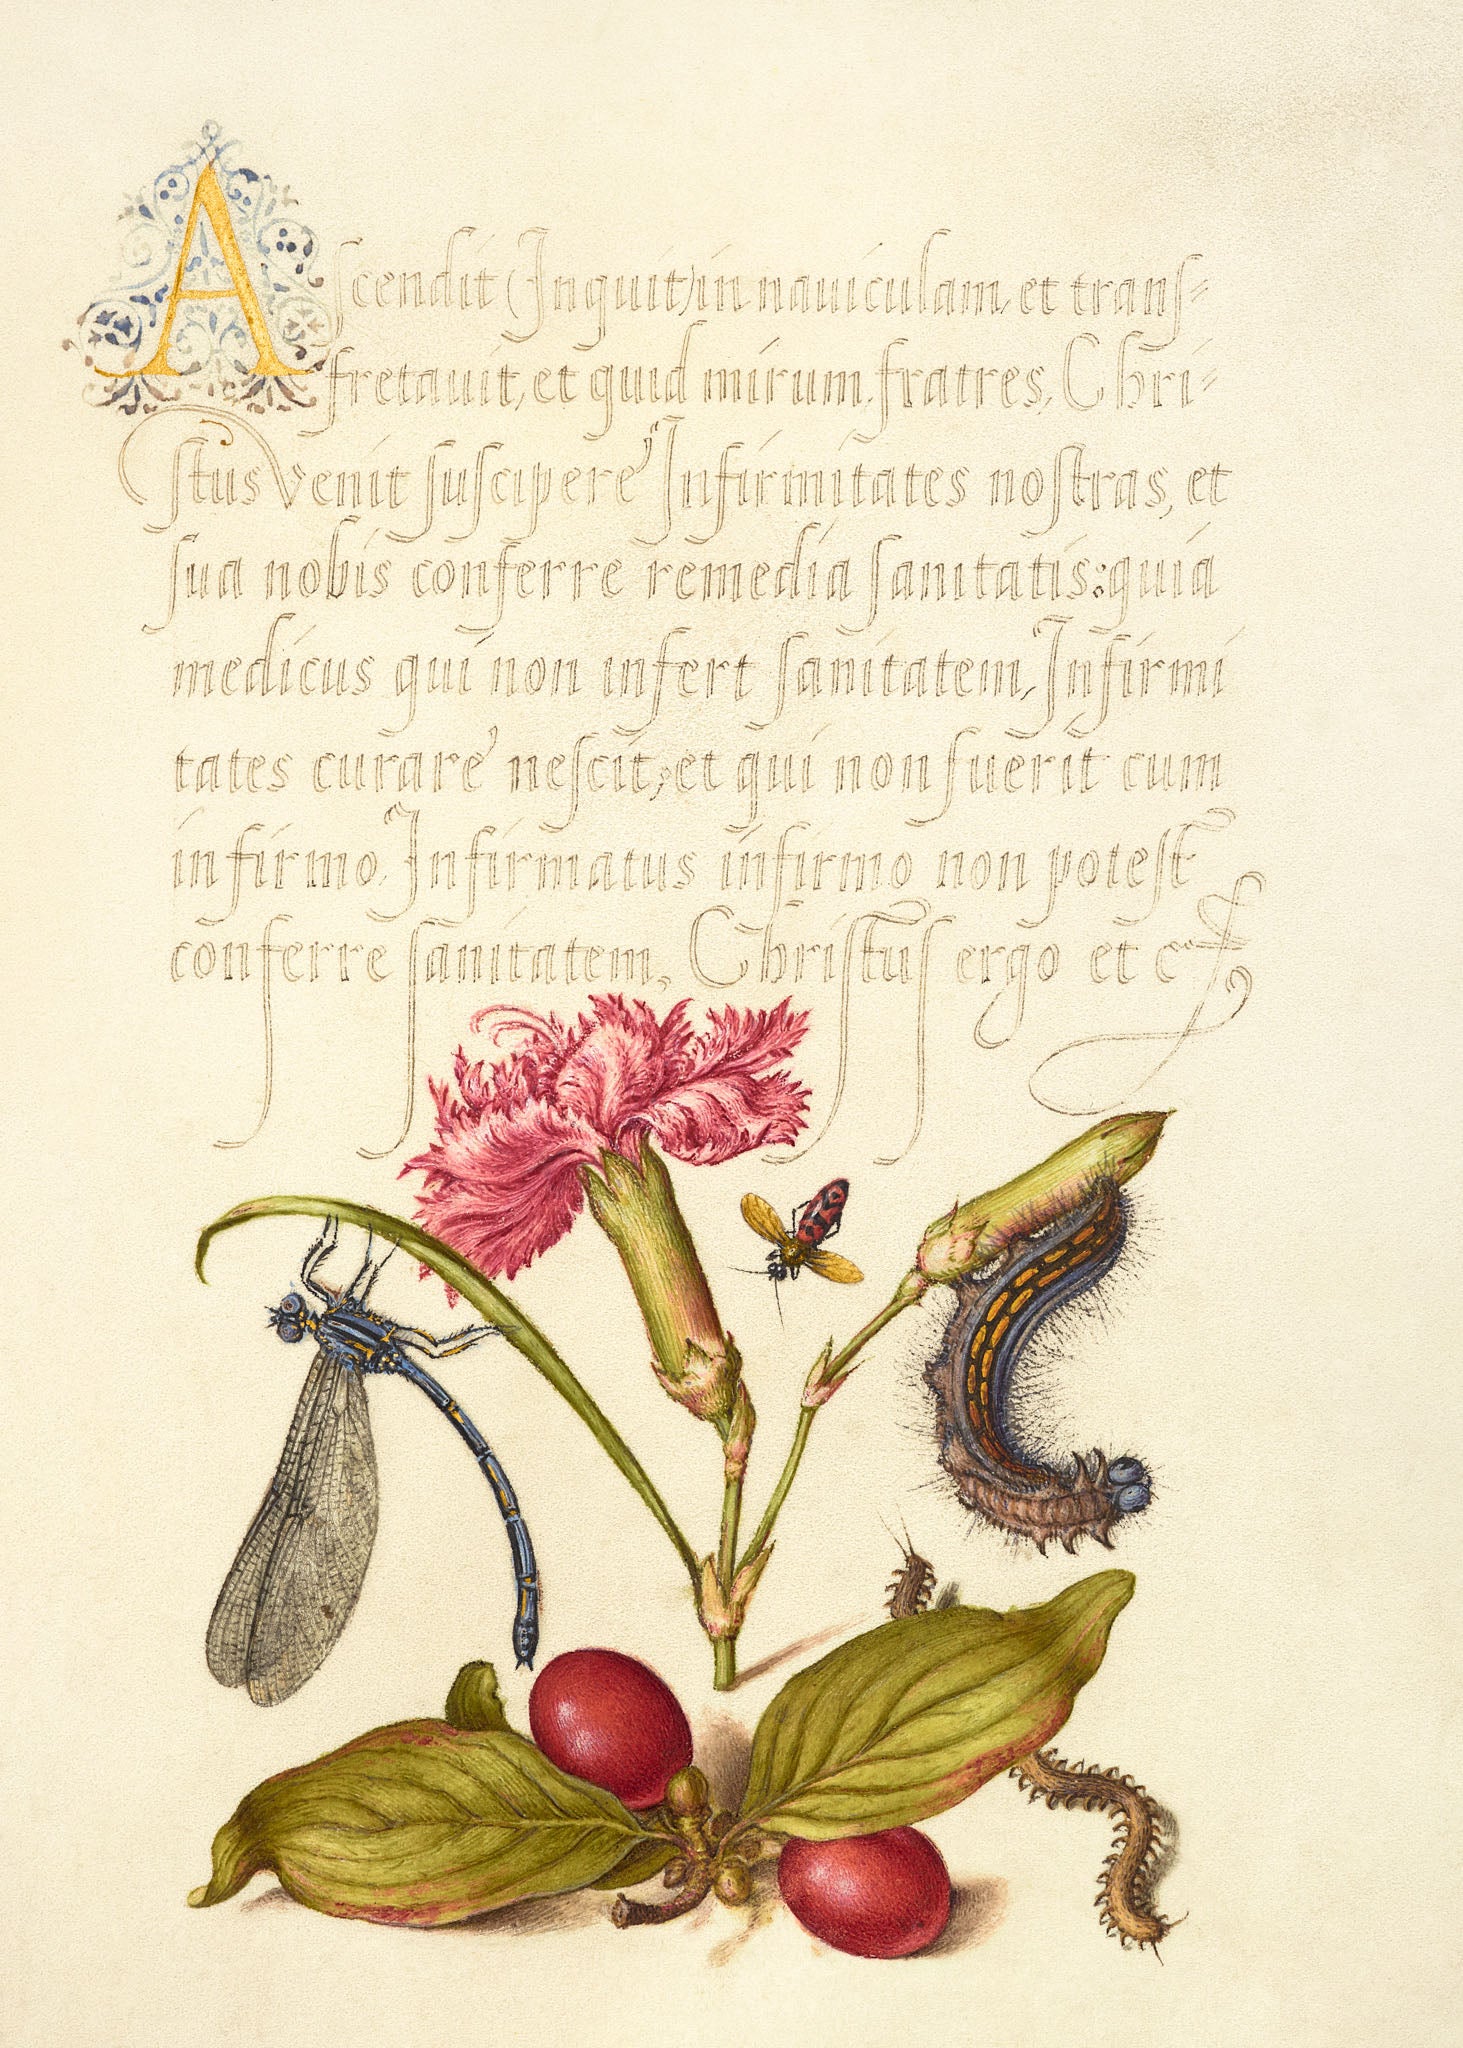 Ascendit (Inquit) in nauiculam, et trans-
fretauit, et quid mirum, fratres, Chri-
stus Venit suscipere Infirmitates nostras, et
sua nobis conferre remedia sanitatis: quia
medicus qui non infert sanitatem, Infirmi
tates curare nescit; et qui non fuerit cum
infirmo, Infirmatus infirmo non potest
conferre sanitatem, Christus ergo et c